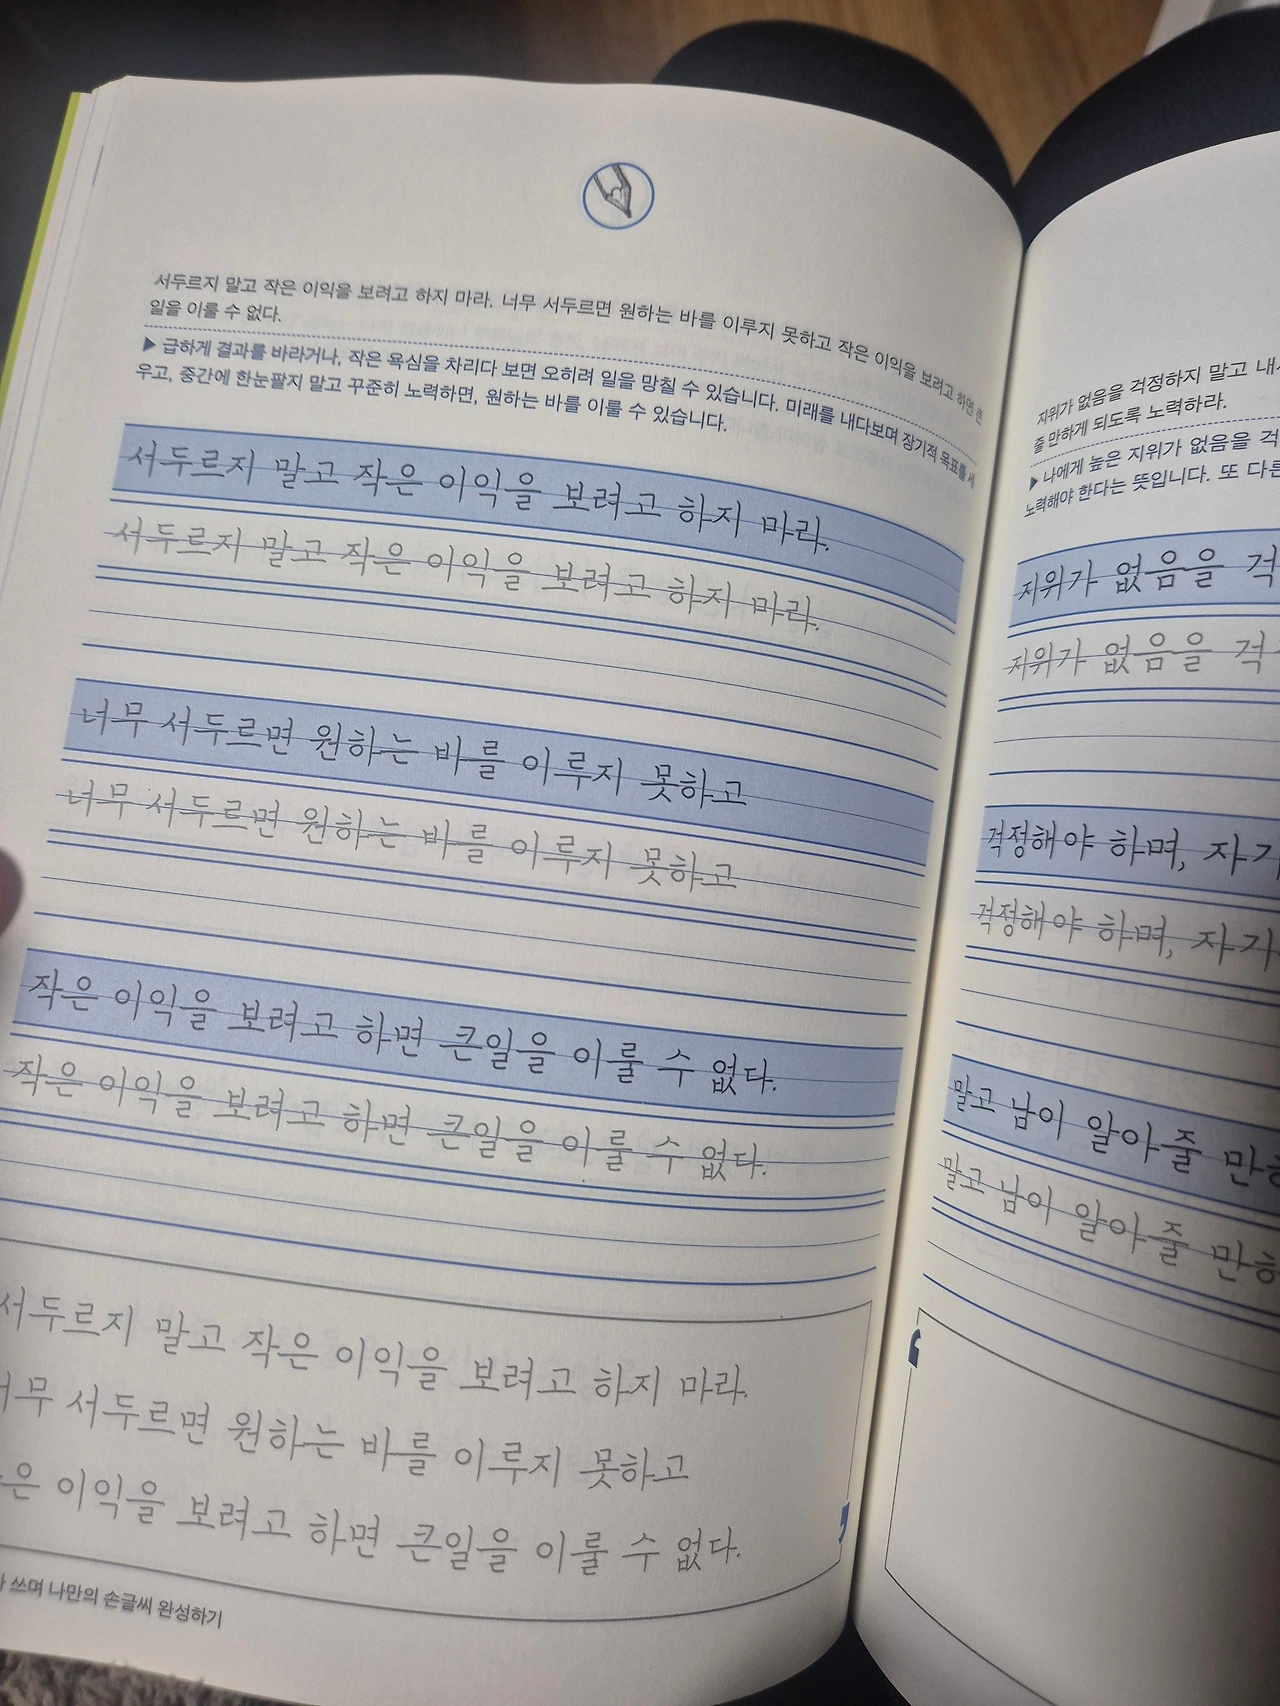 서두르지 말고 작은 이익을 보려고 하지 마라. 너무 서두르면 원하는 바를 이루지 못하고 작은 이익을 보려고 하면 큰
일을 이룰 수 없다.
▶ 급하게 결과를 바라거나, 작은 욕심을 차리다 보면 오히려 일을 망칠 수 있습니다. 미래를 내다보며 장기적 목표를 세
우고, 중간에 한눈팔지 말고 꾸준히 노력하면, 원하는 바를 이룰 수 있습니다.
서두르지 말고 작은 이익을 보려고 하지 마라.
서두르지 말고 작은 이익을 보려고 하지 마라.
너무 서두르면 원하는 바를 이루지 못하고
너무 서두르면 원하는 바를 이루지 못하고
작은 이익을 보려고 하면 큰일을 이룰 수 없다.
작은 이익을 보려고 하면 큰일을 이룰 수 없다.
서두르지 말고 작은 이익을 보려고 하지 마라.
너무 서두르면 원하는 바를 이루지 못하고
은 이익을 보려고 하면 큰일을 이룰 수 없다.
쓰며 나만의 손글씨 완성하기
지위가 없음을 걱정하지 말고
줄 만하게 되도록 노력하라.
▶ 나에게 높은 지위가 없음을
노력해야 한다는 뜻입니다. 또
지위가 없음을 걱
지위가 없음을 걱
걱정해야 하며, 자기
걱정해야 하며, 자기
말고 남이 알아줄 만
말고 남이 알아줄 만